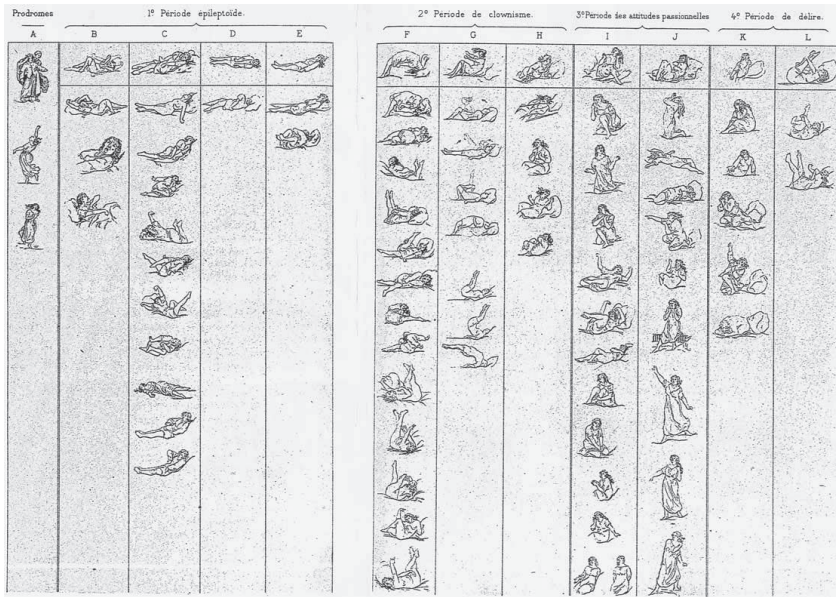 Prodromes
1º Période épileptoïde.
2º Période de clownisme.
3º Période des attitudes passionnelles
4º Période de délire.
A B C D E F G H I J K L